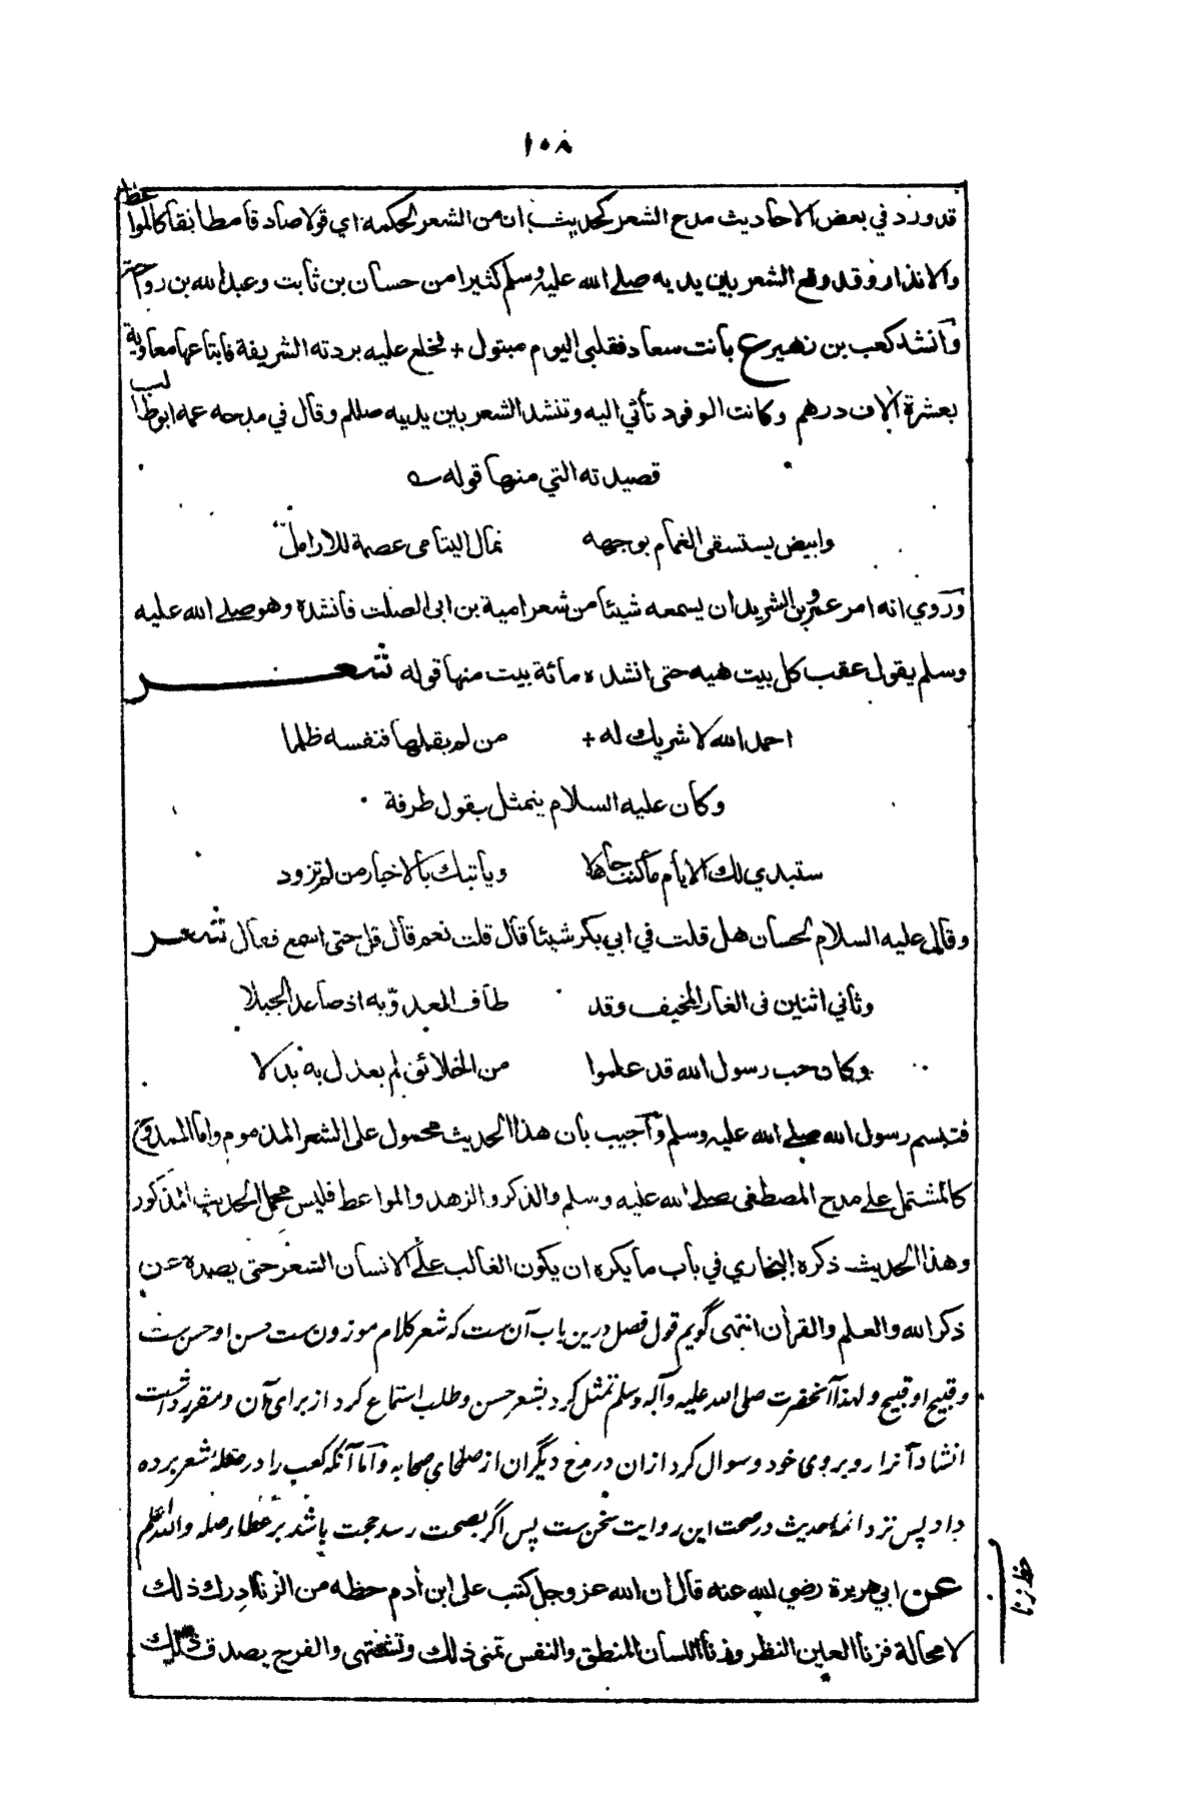 ١٠٨
قد ورد في بعض الاحاديث مدح الشعر كحديث ان من الشعر لحكمة اي قولا صادقا مطابقا كالمواعظ
والانذار وقد وقع الشعر بين يديه صلى الله عليه وسلم كثيرا من حسان بن ثابت وعبد الله بن رواحة
وانشد كعب بن زهير ع بانت سعاد فقلبى اليوم مبتول + فخلع عليه بردته الشريفة فابتاعها معاوية
بعشرة آلاف درهم وكانت الوفود تأتي اليه وتنشد الشعر بين يديه صللم وقال في مدحه عمه ابوطالب
قصيدته التي منها قوله
وابيض يستسقى الغمام بوجهه ثمال اليتامى عصمة للارامل
وروي انه امر عمرو بن الشريد ان يسمعه شيئا من شعر امية بن ابى الصلت فانشده وهو صلى الله عليه
وسلم يقول عقب كل بيت هيه حتى انشده مائة بيت منها قوله شعر
احمد الله لا شريك له + من لم يقلها فنفسه ظلما
وكان عليه السلام يتمثل بقول طرفة
ستبدي لك الايام ما كنت جاهلا وياتيك بالاخبار من لم تزود
وقال عليه السلام لحسان هل قلت في ابي بكر شيئا قال قلت نعم قال قل حتى اسمع فقال شعر
وثاني اثنين فى الغار المنيف وقد طاف العدو به اذ صاعد الجبلا
وكان حب رسول الله قد علموا من الخلائق لم يعدل به بدلا
فتبسم رسول الله صلى الله عليه وسلم واجيب بان هذا الحديث محمول على الشعر المذموم واما الممدوح
كالمشتمل على مدح المصطفى صلى الله عليه وسلم والذكر والزهد والمواعظ فليس محمل الحديث المذكور
وهذا الحديث ذكره البخاري في باب ما يكره ان يكون الغالب على الانسان الشعر حتى يصده عن
ذكر الله والعلم والقران انتهى گويم قول فصل درين باب آن ست كه شعر كلام موزون ست حسن او حسن ست
وقبيح او قبيح ولهذا آنحضرت صلى الله عليه وآله وسلم تمثل كرد بشعر حسن وطلب استماع كرد از براى آن ومقرر داشت
انشاد آنرا روبروى خود وسوال كرد ازان در مدح ديگران از صلحاى صحابه واما آنكه كعب را در صله شعر برده
داد پس نزد ائمه حديث در صحت اين روايت سخن ست پس اگر بصحت رسد حجت باشد بر عطاء صله والله اعلم
عن ابي هريرة رضي الله عنه قال ان الله عز وجل كتب على ابن أدم حظه من الزنا ادرك ذلك
لا محالة فزنا العين النظر وزنا اللسان المنطق والنفس تمنى ذلك وتشتهى والفرج يصدق ذلك
حظ زنا